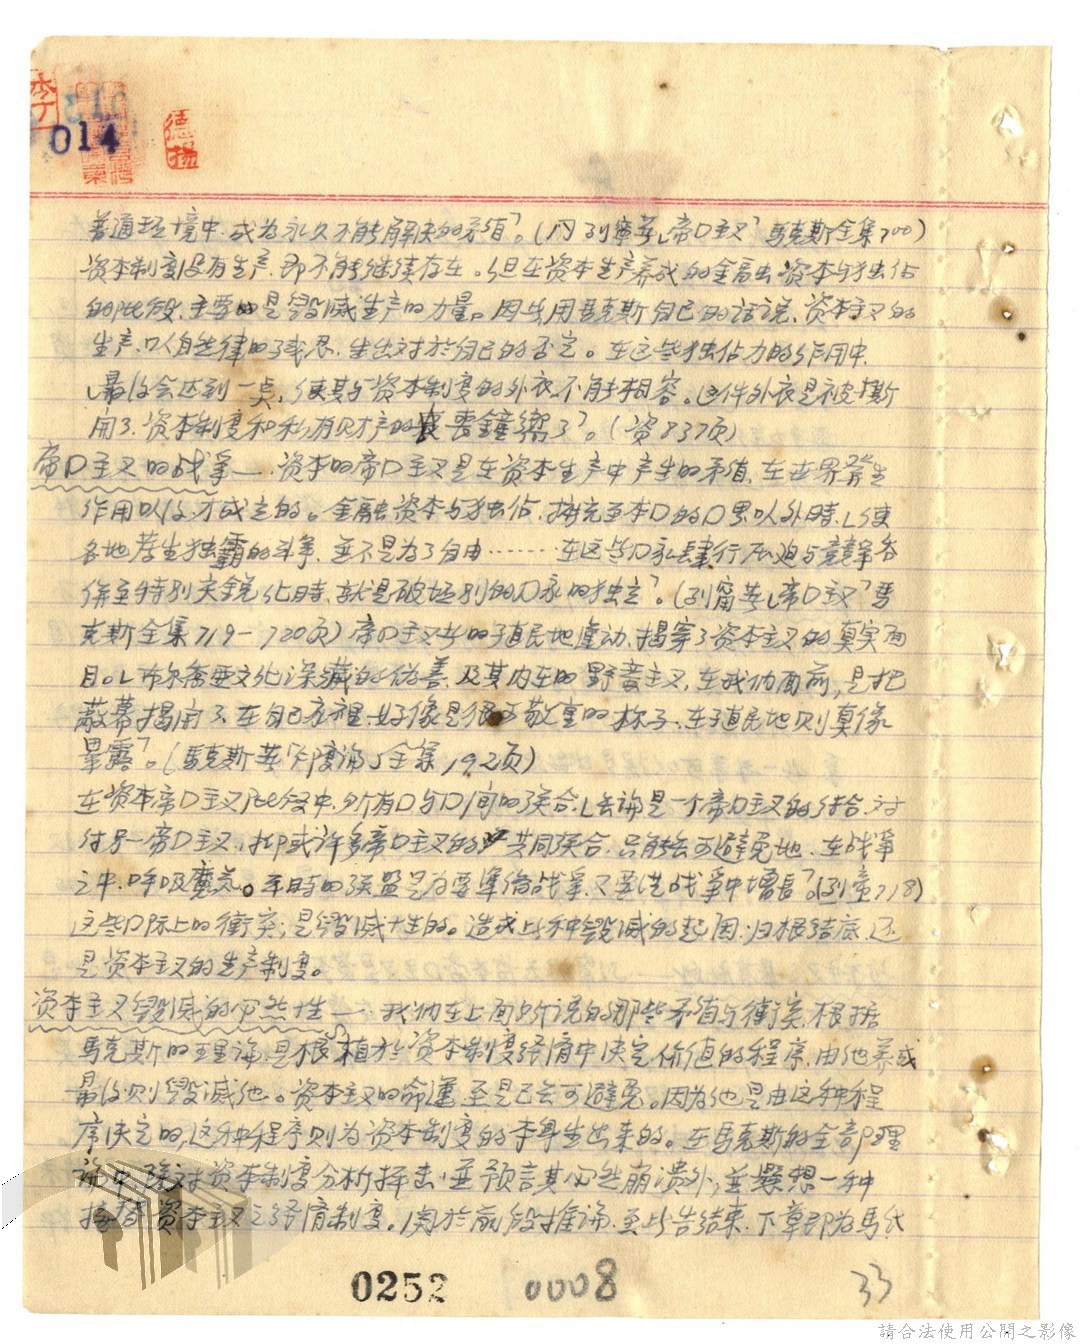 李
014
德
普通环境中,成为永久不能解决的矛盾」。(同列寧著「帝口主义」馬克斯全集700)
资本制度没有生产,即不能继续存在。但在资本生产养成的金融资本与独佔
的阶段,主要的是毀滅生产的力量。因此,用馬克斯自己的话说,资本主义的
生产,以自然律的残忍,生出对於自己的否定。在这些独佔力的作用中,
「最後会达到一点,使其与资本制度的外衣不能相容。这件外衣是被撕
開了,资本制度和私有财产的喪鐘響了」。(资837页)
帝口主义的战爭— 资本的帝口主义是在资本生产中产生的矛盾,在世界發生
作用以後,才成立的。金融资本与独佔,擴充至本口的口界以外時,「使
各地發生独霸的斗爭,並不是为了自由……在这些口家肆行压迫与競爭合
併至特別尖銳化時,就是破坏別的口家的独立」。(列甯著「帝口主义」馬
克斯全集719-720页)帝口主义者的殖民地虛动,揭穿了资本主义的真实面
目。「布尔喬亚文化深藏的偽善,及其内在的野蛮主义,在我们面前,是把
蔽幕揭開了,在自己家裡,好像是很可敬重的样子,在殖民地则真像
暴露」。(馬克斯著「印度論」全集192页)
在资本帝口主义阶段中,所有口与口间的联合,「無論是一个帝口主义的結合,对
付另一帝口主义,抑或许多帝口主义的共同联合,只能無可避免地,在战爭
之中,呼吸魔荒。平時的联盟是为要準備战爭,又要從战爭中增長」。(列甯718)
这些口际上的衝突,是毀滅性的。造成此种毀滅的起因,归根结底,还
是资本主义的生产制度。
资本主义毀滅的必然性— 我们在上面所说的那些矛盾与衝突,根据
馬克斯的理論,是根植於资本制度经濟中決定价值的程序,由他养成
最後则毀滅他。资本主义的命運,至是已無可避免。因为他是由这种程
序決定的,这种程序则为资本制度的本身生出来的。在馬克斯的全部理
論中,除对资本制度分析抨击,並预言其必然崩潰外,並懸想一种
接替资本主义之经濟制度。関於前段推論,至此告結束,下章即为馬氏
0252
0008
33
請合法使用公開之影像